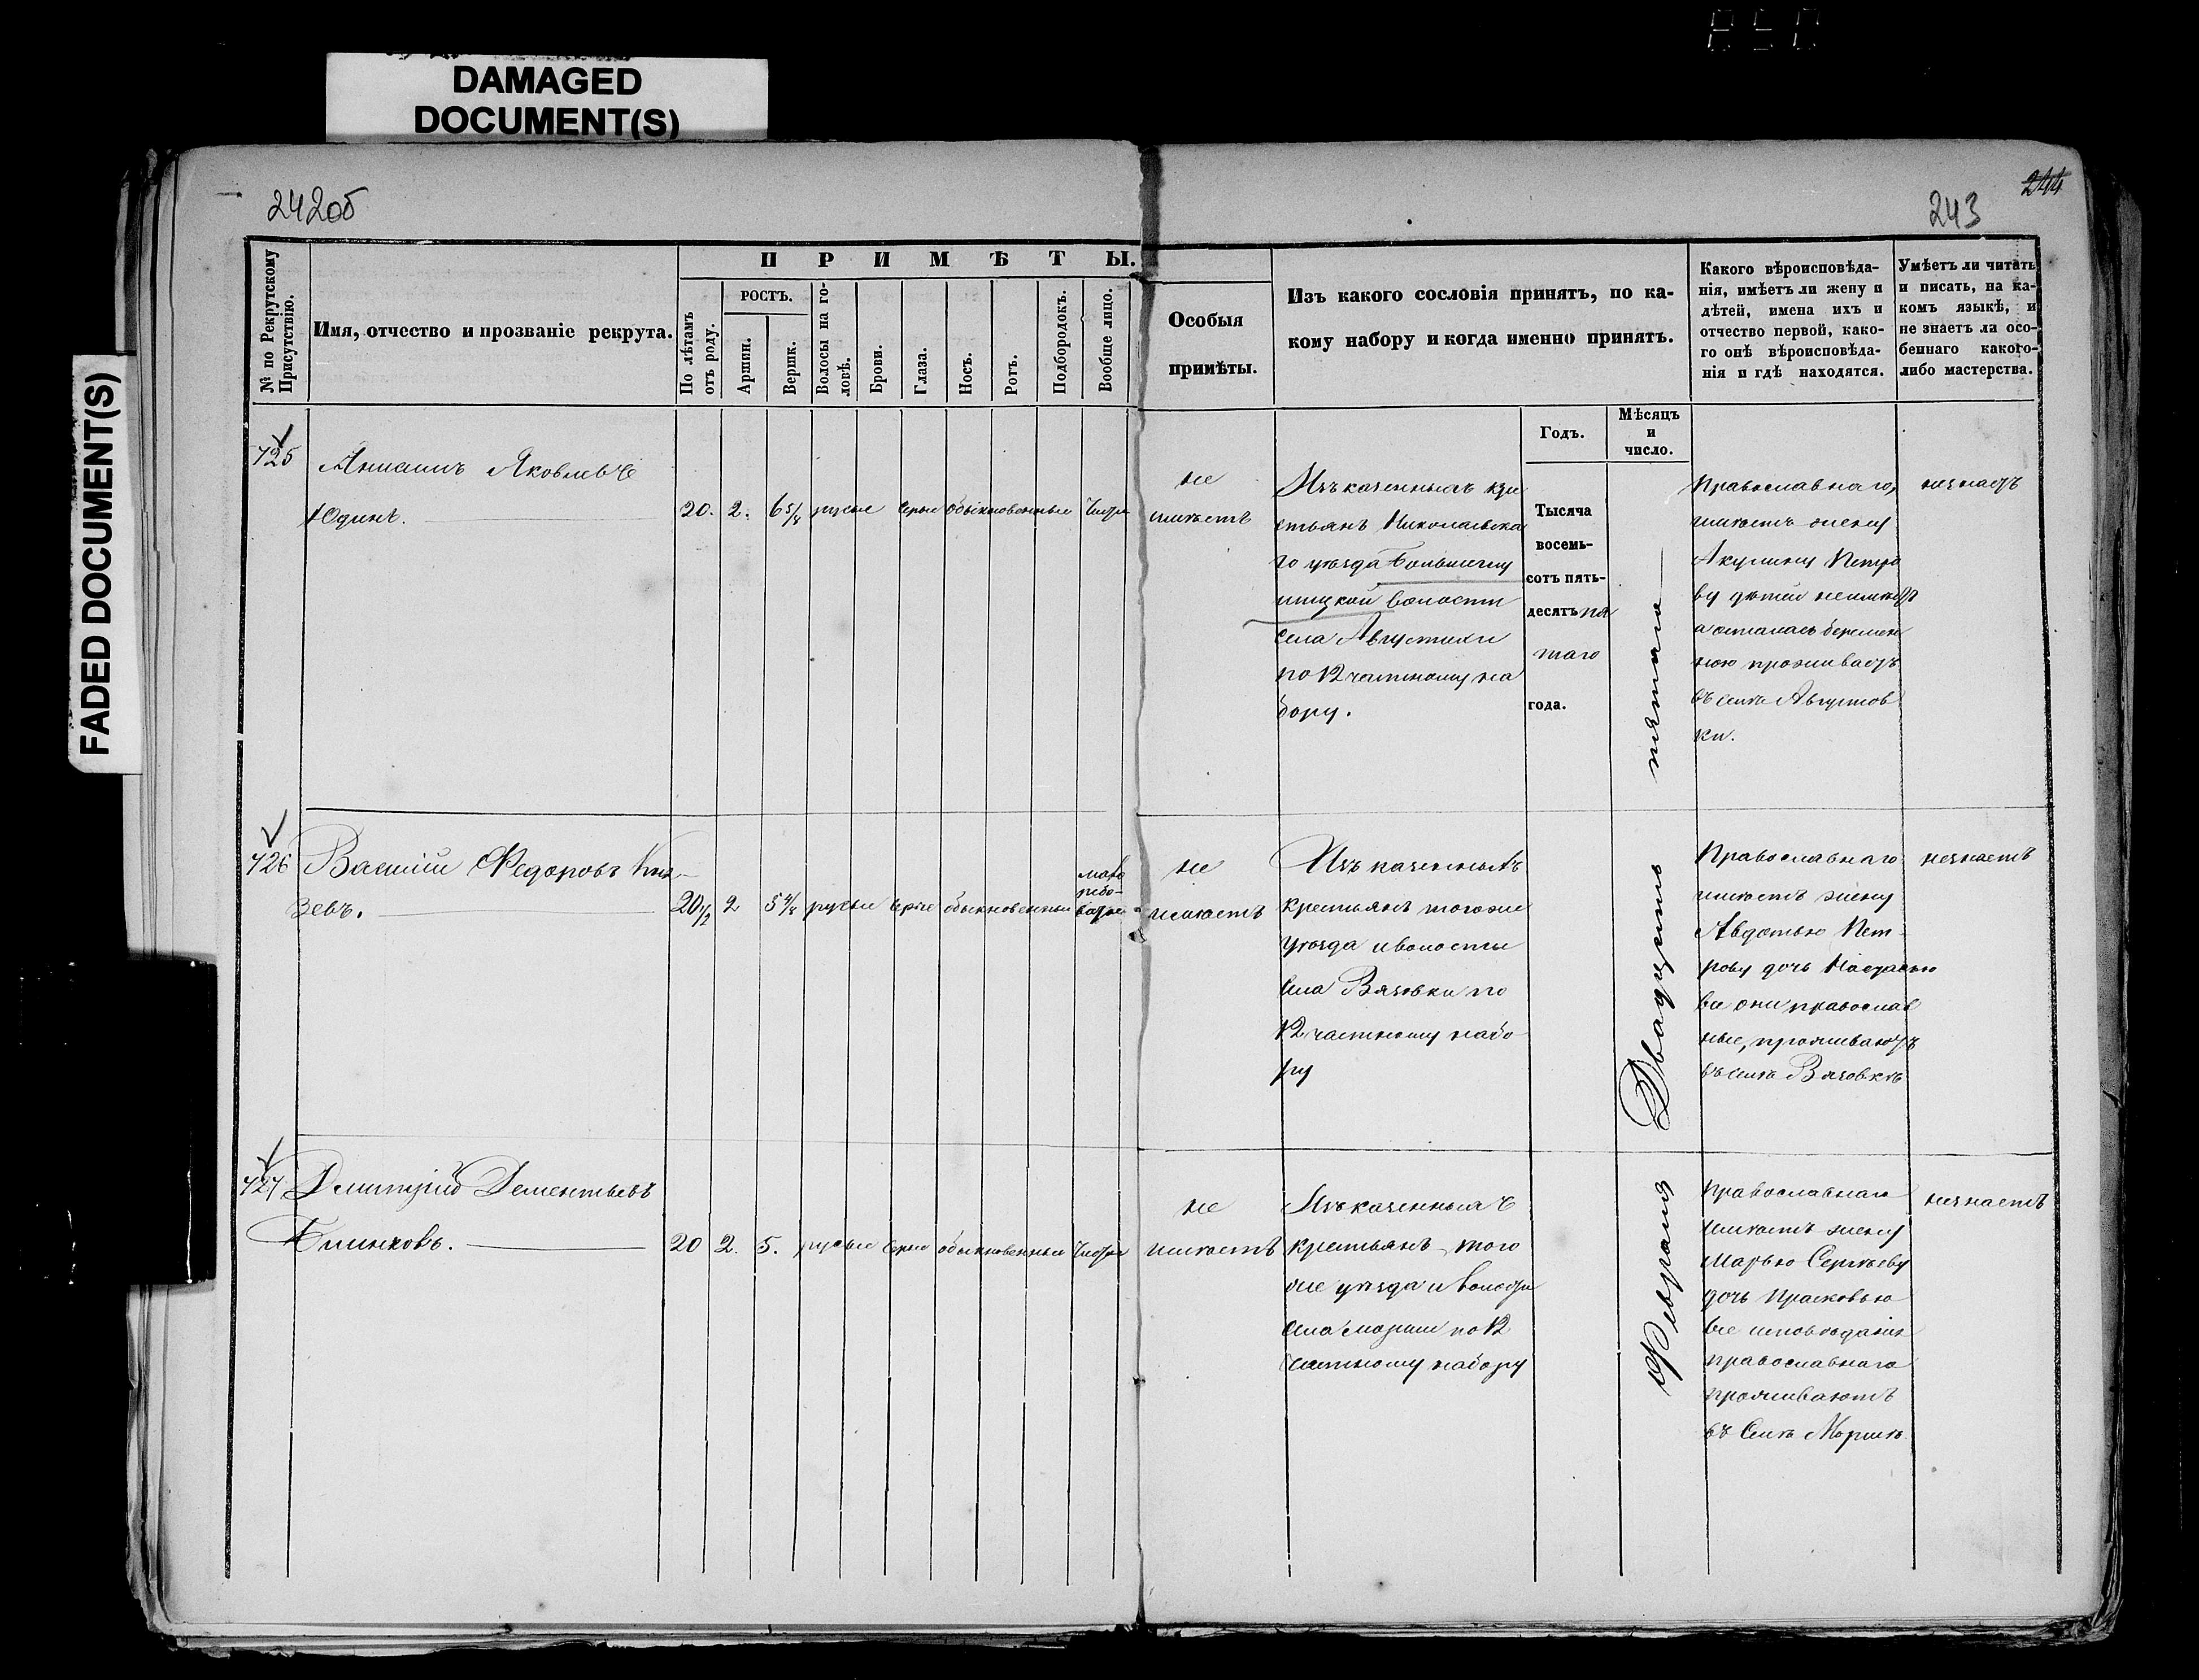 DAMAGED
DOCUMENT(S)
FADED DOCUMENT(S)
242об
243
244
№ по Рекрутскому
Присутствію.
Имя, отчество и прозваніе рекрута.
ПРИМѢТЫ.
По лѣтамъ
отъ роду.
РОСТЪ.
Аршин.
Вершк.
Волосы на го-
ловѣ.
Брови.
Глаза.
Носъ.
Ротъ.
Подбородокъ.
Вообще лицо.
Особыя
примѣты.
Изъ какого сословія принятъ, по ка-
кому набору и когда именно принятъ.
Годъ.
Мѣсяцъ
и
число.
Какого вѣроисповѣда-
нія, имѣетъ ли жену и
дѣтей, имена ихъ и
отчество первой, како-
го онѣ вѣроисповѣда-
нія и гдѣ находятся.
Умѣетъ ли читать
и писать, на ка-
комъ языкѣ, и
не знаетъ ли осо-
беннаго какого-
либо мастерства.
725
Яковлевъ
Юдинъ.
20. 2. 6 5/8 русые серые обыкновенные чистое
не
имѣетъ
Изъ казенныхъ кре
стьянъ Николаевска
го уѣзда
волости
села
по 12 частному на
бору.
Тысяча
восемь-
сотъ пять-
десятъ пя
таго
года.
Православнаго,
имѣетъ жену
Акулину Петро
ву дѣтей неимѣетъ
а осталась беремен
ною проживаетъ
въ селѣ Августов
ки.
незнаетъ
726
Василий Федоровъ Кня-
зевъ.
20 1/2 2 5 4/8 русые серые обыкновенныя
мало
рябо-
ватое
не
имѣетъ
Изъ казенныхъ
крестьянъ тогоже
уѣзда и волости
села Вязовки по
12 частному набо-
ру
Православнаго
имѣетъ жену
Авдотью Пет-
рову дочь Настасью
все они православ
ные, проживаютъ
въ селѣ Вязовкѣ
незнаетъ
727
Дмитрий Дементьевъ
Блинковъ.
20 2. 5. русые серые обыкновенныя чистое
не
имѣетъ
Изъ казенныхъ
крестьянъ того
же уѣзда и волости
села Моршъ по 12
частному набору
Февраля Двадцать пятаго
Православнаго
имѣетъ жену
Марью Сергѣеву
дочь Прасковью
все исповѣданія
православнаго
проживаютъ
въ селѣ Моршѣ
незнаетъ